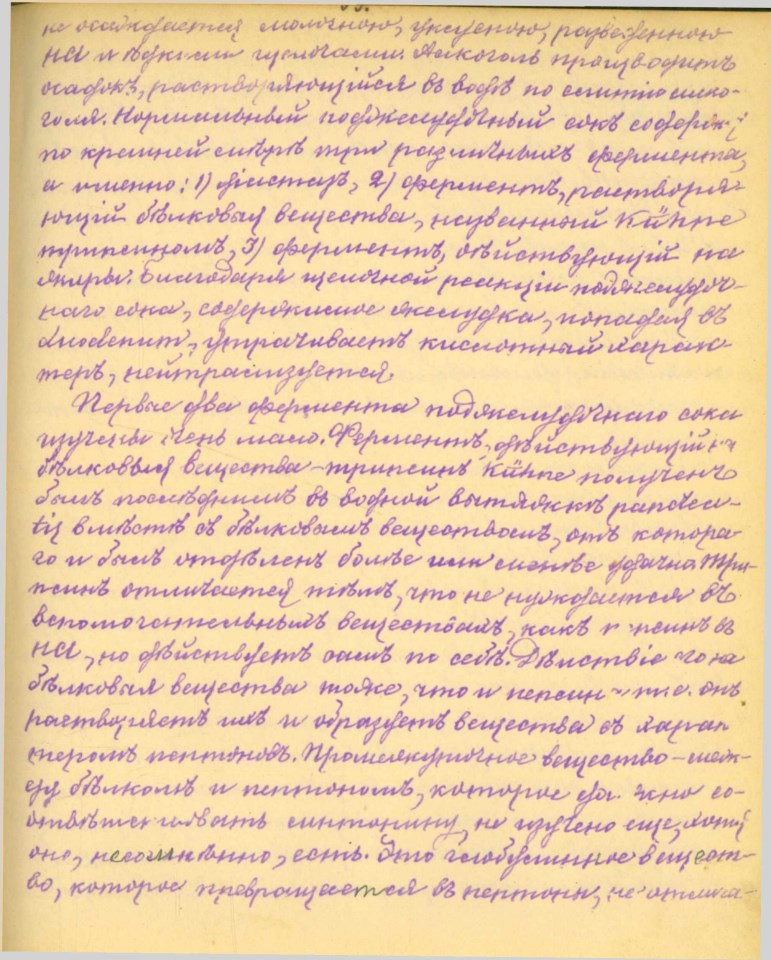 не осаждается молочною, уксусною, разведенною
HCl и ѣдкими щелочами. Алкоголь производитъ
осадокъ, растворяющійся въ водѣ по слитіи алко-
голя. Нормальный поджелудочный сокъ содерж.
по крайней мѣрѣ три различныхъ фермента,
а именно: 1) діастазъ, 2) ферментъ, растворя-
ющій бѣлковыя вещества, названный Kühne
трипсиномъ, 3) ферментъ, дѣйствующій на
жиры. Благодаря щелочной реакціи поджелудоч-
наго сока, содержимое желудка, попадая въ
duodenum, утрачиваетъ кислотный харак-
теръ, нейтрализуется.
Первые два фермента поджелудочнаго сока
изучены очень мало. Ферментъ, дѣйствующій на
бѣлковыя вещества - трипсинъ Kühne полученъ
былъ послѣднимъ въ водной вытяжкѣ pancrea-
tis вмѣстѣ съ бѣлковымъ веществомъ, отъ котора-
го и былъ отдѣленъ болѣе или менѣе удачно. Три-
псинъ отличается тѣмъ, что не нуждается въ
вспомогательныхъ веществахъ, какъ пепсинъ въ
HCl, но дѣйствуетъ самъ по себѣ. Дѣйствіе его на
бѣлковыя вещества тоже, что и пепсина т.е. онъ
растворяетъ ихъ и образуетъ вещества съ харак
теромъ пептоновъ. Промежуточное вещество - меж-
ду бѣлкомъ и пептономъ, которое должно со-
отвѣтствовать синтонину, не изучено еще, хотя
оно, несомнѣнно, есть. Это глобулинное вещест-
во, которое превращается въ пептоны, не отлича-